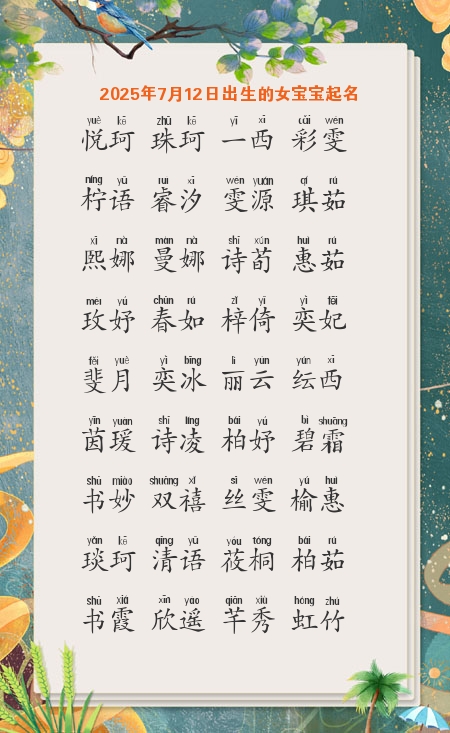 2025年7月12日出生的女宝宝起名
yuè kē zhū kē yī xī cǎi wén
悦珂 珠珂 一西 彩雯
níng yǔ ruì xī wén yuán qí rú
柠语 睿汐 雯源 琪茹
xī nà màn nà shī xún huì rú
熙娜 曼娜 诗荀 惠茹
méi yú chūn rú zǐ yǐ yì fēi
玫妤 春如 梓倚 奕妃
fěi yuè yì bīng lì yún yún xī
斐月 奕冰 丽云 纭西
yīn yuàn shī líng bǎi yú bì shuāng
茵瑗 诗凌 柏妤 碧霜
shū miào shuāng xǐ sī wén yú huì
书妙 双禧 丝雯 榆惠
yǎn kē qīng yǔ yóu tóng bǎi rú
琰珂 清语 莜桐 柏茹
shū xiá xīn yáo qiān xiù hóng zhú
书霞 欣遥 芊秀 虹竹